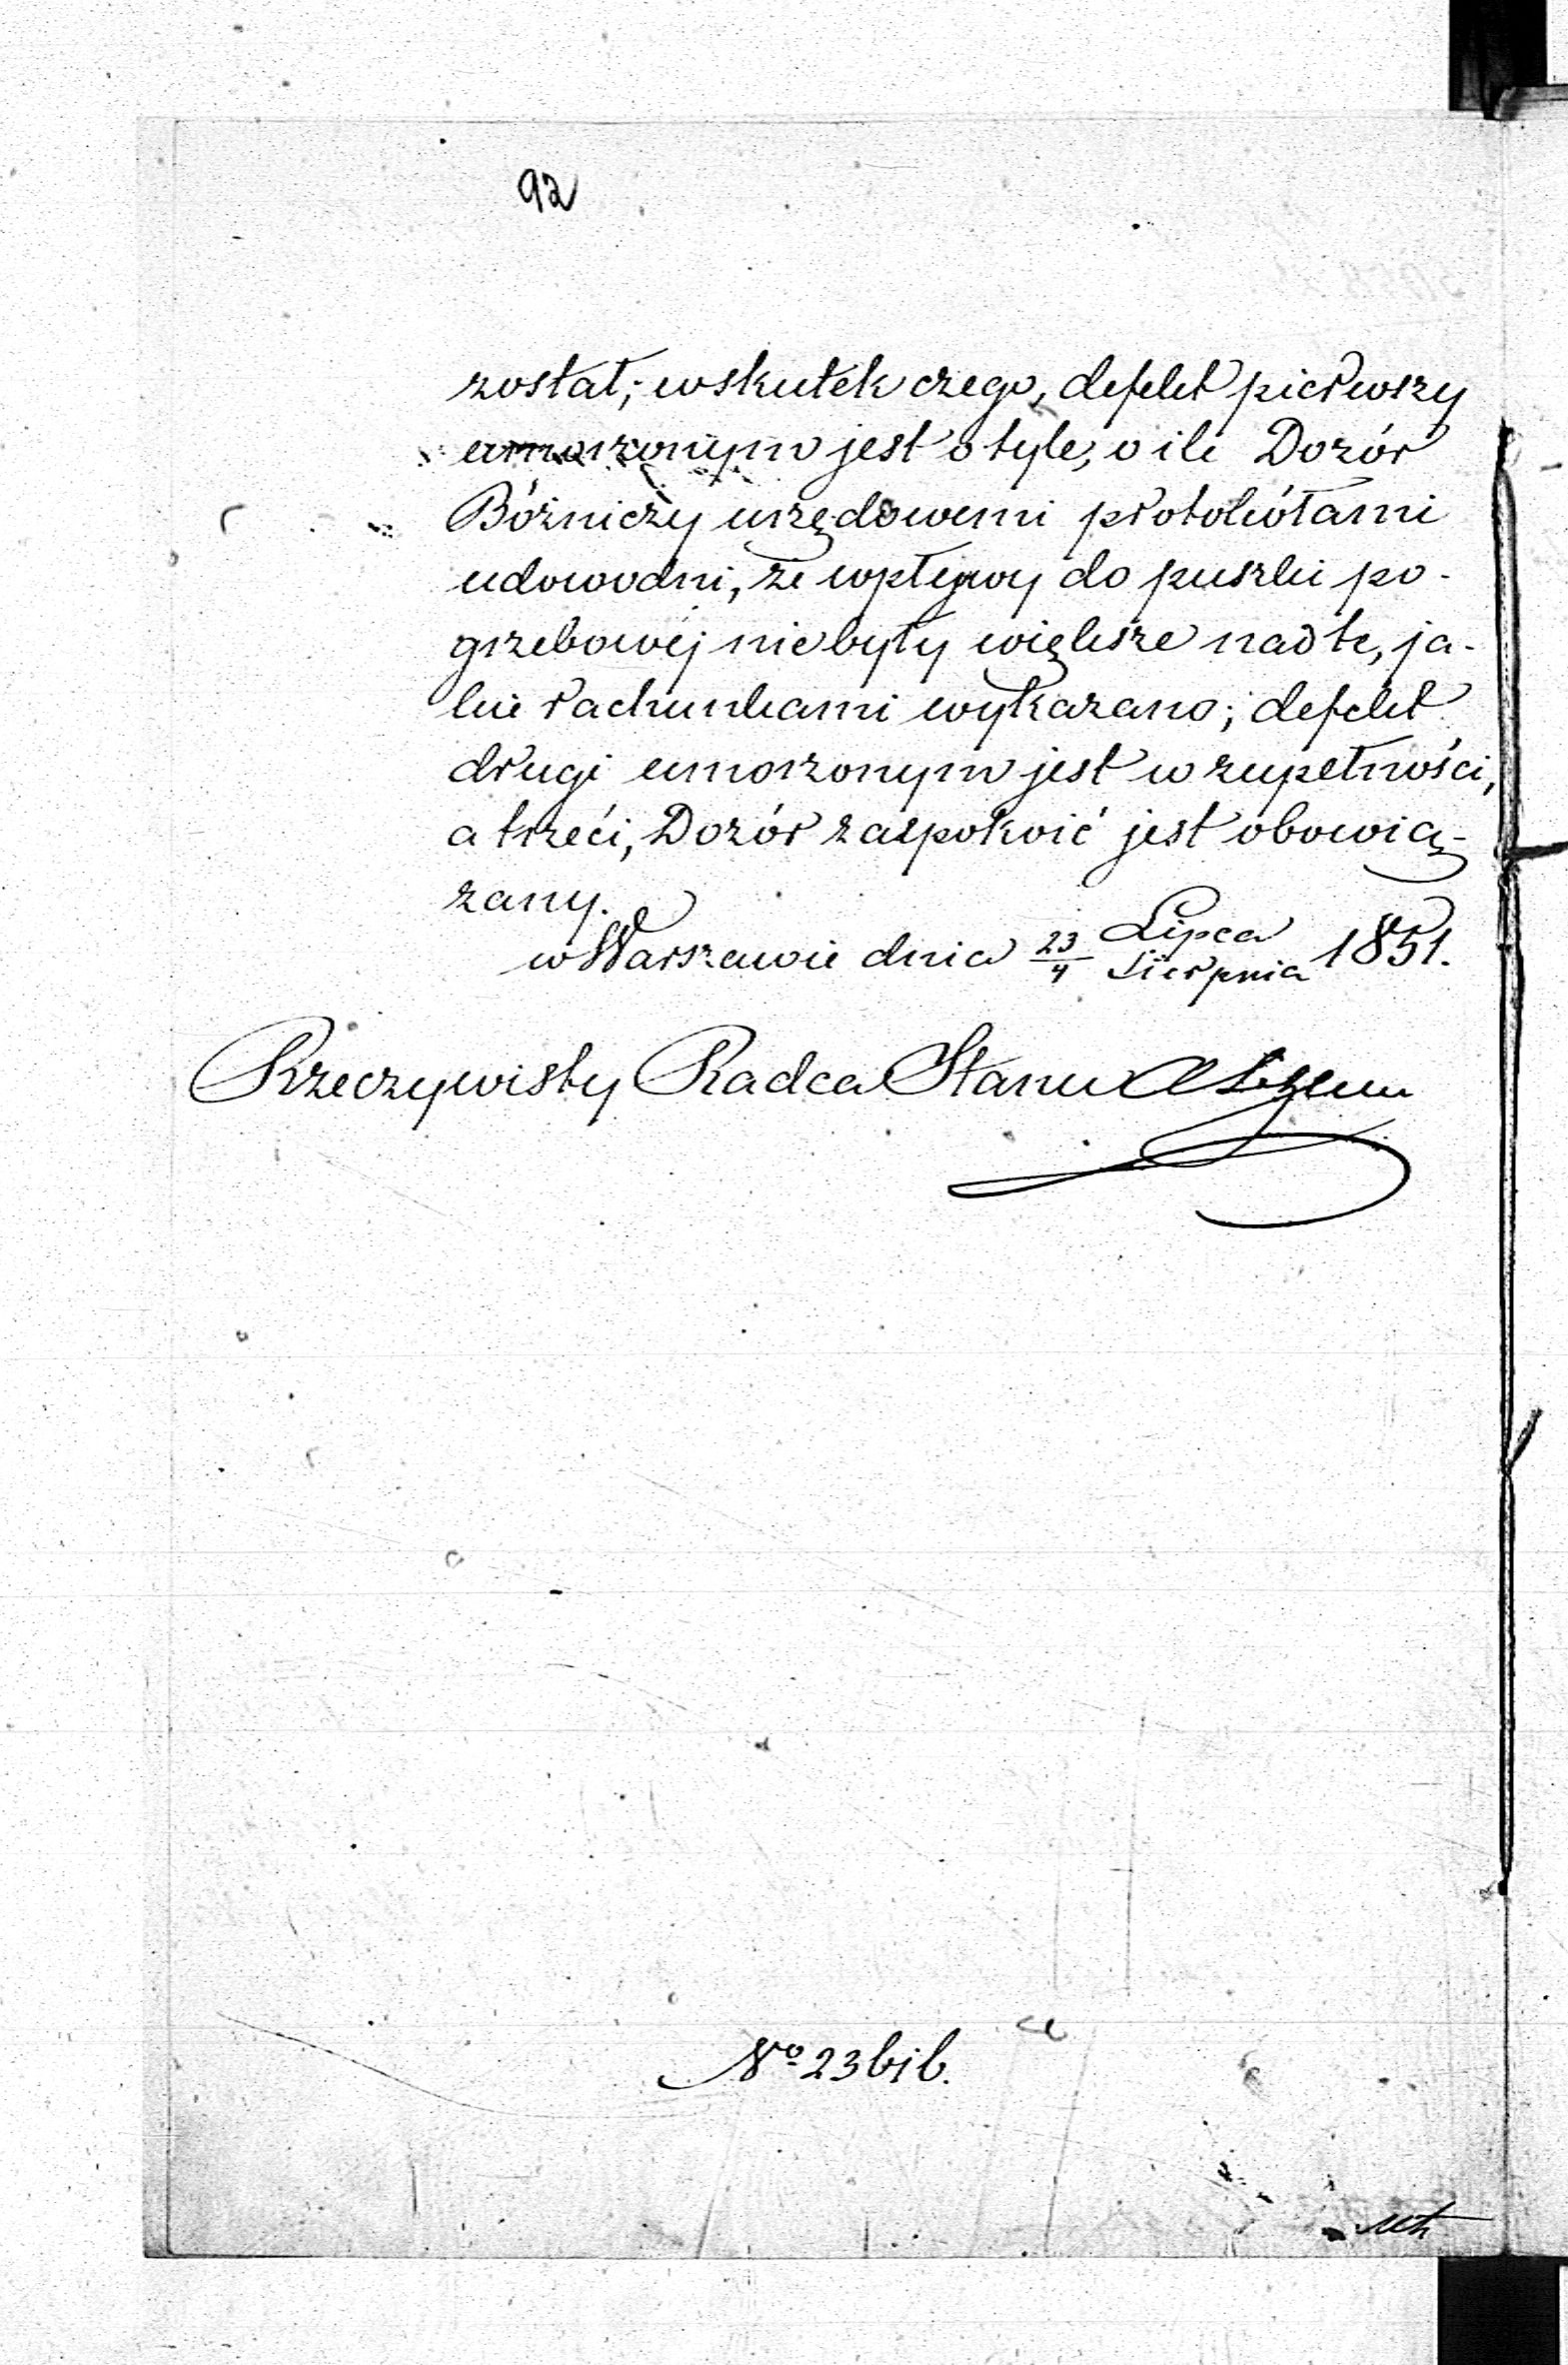 92
został; wskutek czego, defekt pierwszy
umorzonym jest o tyle, o ile Dozór
Bóżniczy urzędowemi protokółami
udowodni, że wpływy do puszki po-
grzebowéj nie były większe nad te, ja-
kie rachunkami wykazano; defekt
drugi umorzonym jest w zupełności,
a trzeci, Dozór zaspokoić jest obowią-
zany.
w Warszawie dnia 23/4 Lipca/Sierpnia 1851.
Rzeczywisty Radca Stanu